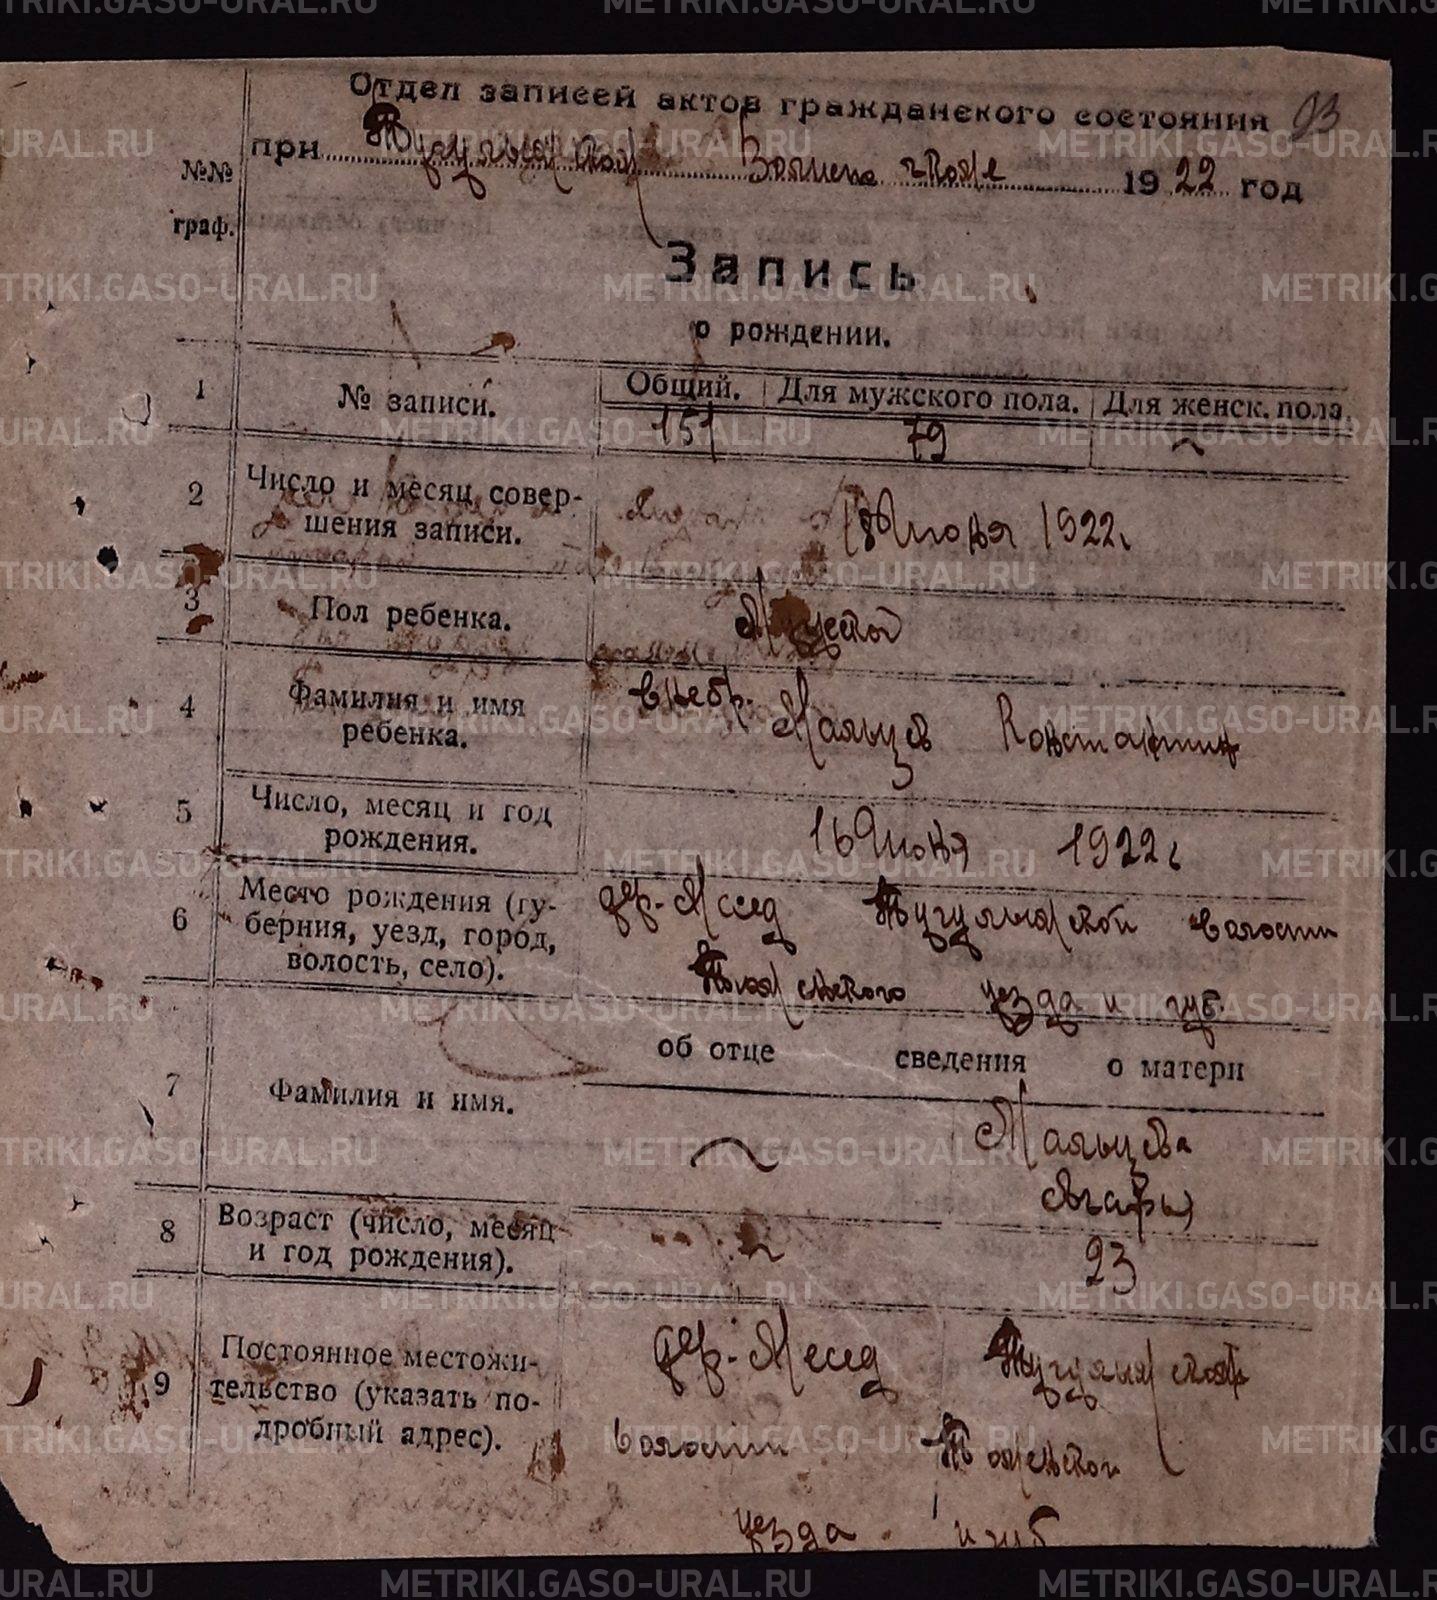 93
Отдел записей актов гражданского состояния
при Тугулымской Волисполкоме 1922 год
№№ граф.
Запись
о рождении.
1 № записи. Общий. Для мужского пола. Для женск. пола.
151 79 ~
2 Число и месяц совершения записи. Июня 1922 г
3 Пол ребенка. Мужской
4 Фамилия и имя ребенка. внебр. Мальцев Константин
5 Число, месяц и год рождения. 16 Июня 1922 г
6 Место рождения (губерния, уезд, город, волость, село). дер. Месед Тугулымской волости
Тюменского уезда и губ
об отце сведения о матери
7 Фамилия и имя. ~ Мальцева
Агафья
8 Возраст (число, месяц и год рождения). ~ 23
9 Постоянное местожительство (указать подробный адрес). дер. Месед Тугулымской
волости Тюменской
уезда и губ
METRIKI.GASO-URAL.RU